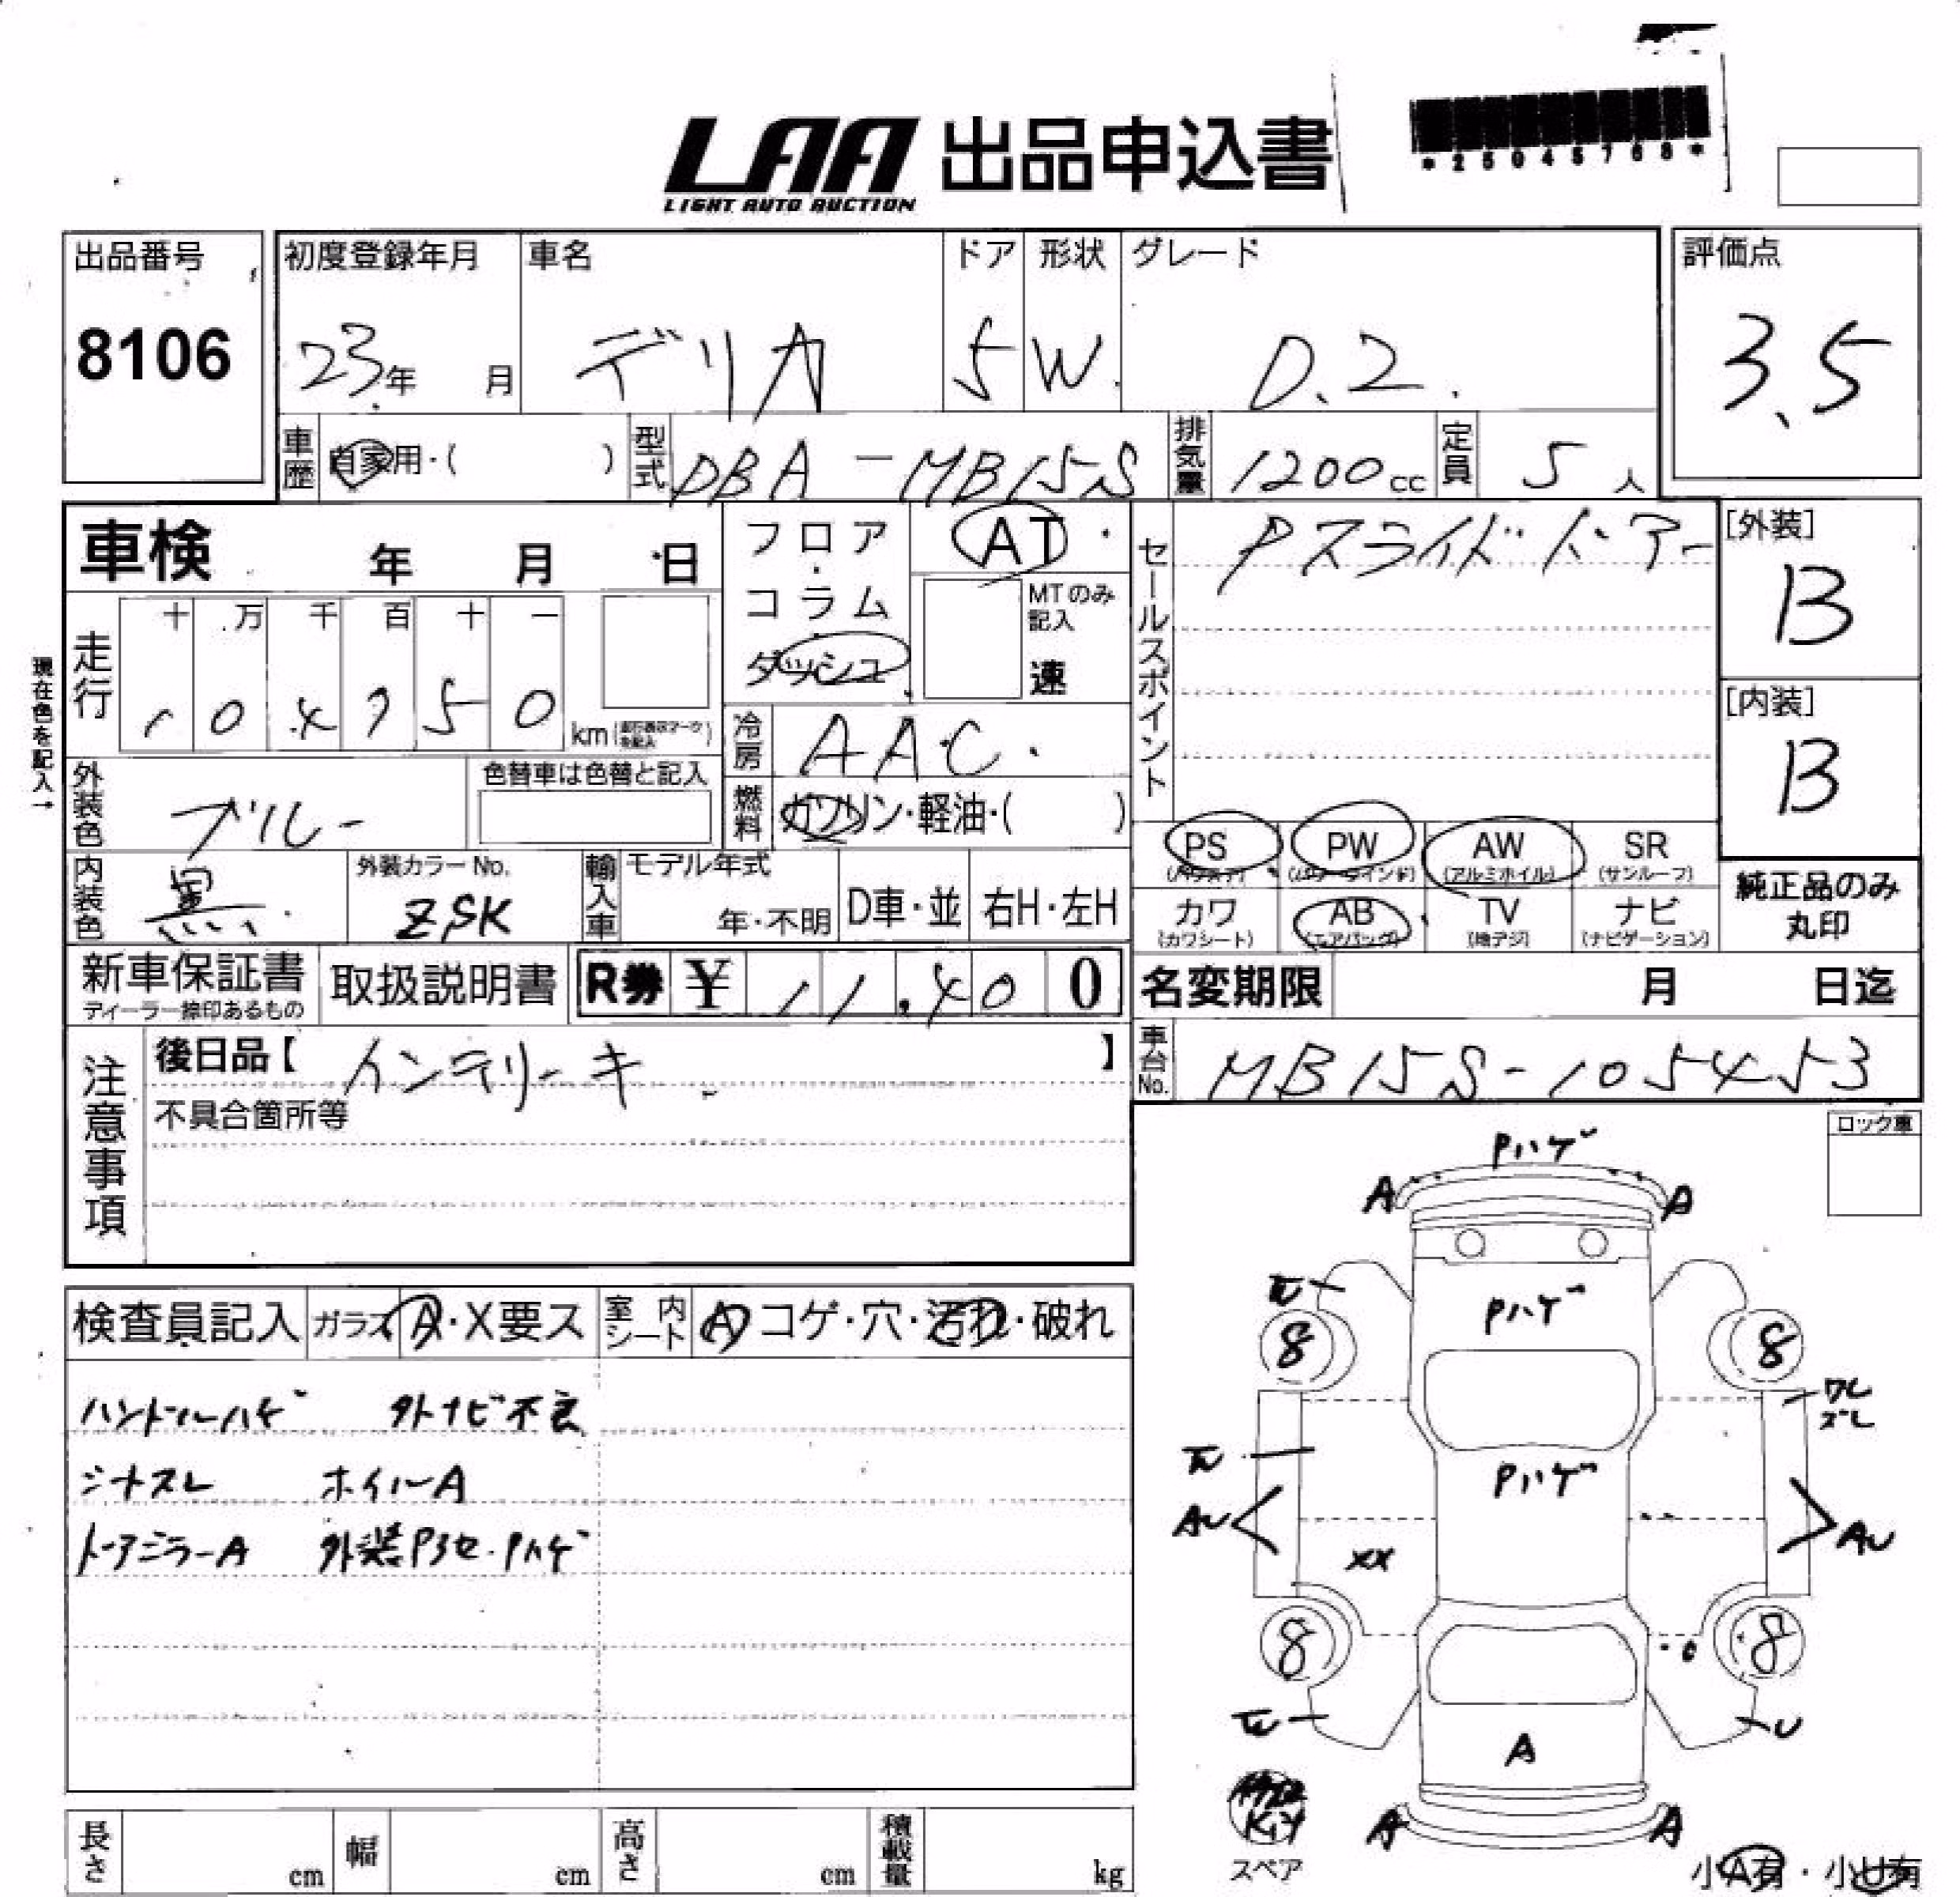 LAA 出品申込書
LIGHT AUTO AUCTION
*25045768*
出品番号 初度登録年月 車名 ドア 形状 グレード 評価点
8106 23年 月 デリカ 5 W. D.2. 3.5
車歴 自家用・( ) 型式 DBA-MB15S 排気量 1200cc 定員 5人
車検 年 月 日
フロア・コラム・ダッシュ
AT
MTのみ記入 速
セールスポイント Pスライドドアー
[外装] B
[内装] B
現在色を記入→
走行 十 万 千 百 十 一
1 0 4 7 5 0 km
冷房 AAC.
外装色 ブルー 色替車は色替と記入
燃料 ガソリン・軽油・( )
PS (パワステ) PW (パワーウインド) AW (アルミホイル) SR (サンルーフ)
カワ (カワシート) AB (エアバッグ) TV (地デジ) ナビ (ナビゲーション)
純正品のみ丸印
内装色 黒 外装カラーNo. ZSK 輸入車 モデル年式 年・不明 D車・並 右H・左H
新車保証書 ディーラー捺印あるもの 取扱説明書 R券 ¥ 11,400
名変期限 月 日迄
車台No. MB15S-105453
注意事項
後日品【 インテリーキ 】
不具合箇所等
ロック車
検査員記入 ガラス A・X要ス 室内シート A コゲ・穴・汚れ・破れ
ハンドルハゲ 外ナビ不良
シナスレ ホイルA
ドアミラーA 外装Pヨセ・Pハゲ
Pハゲ
A A
Pハゲ
8 8
ワレ
ズレ
Pハゲ
AU AU
XX
8 8
U
A
A A
Kit
スペア
小A有・小U有
長さ cm 幅 cm 高さ cm 積載量 kg